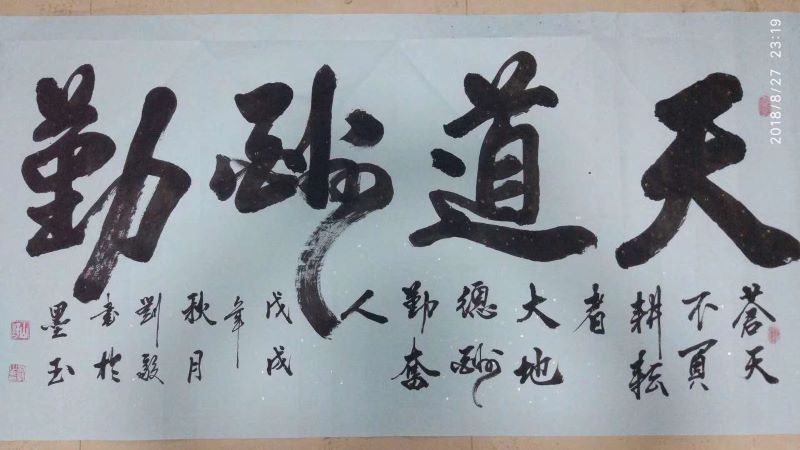 天道酬勤
蒼天
不負
耕耘
者
大地
總酬
勤奮
人
戊戌
年
秋月
劉毅
書於
墨玉
2018/8/27 23:19